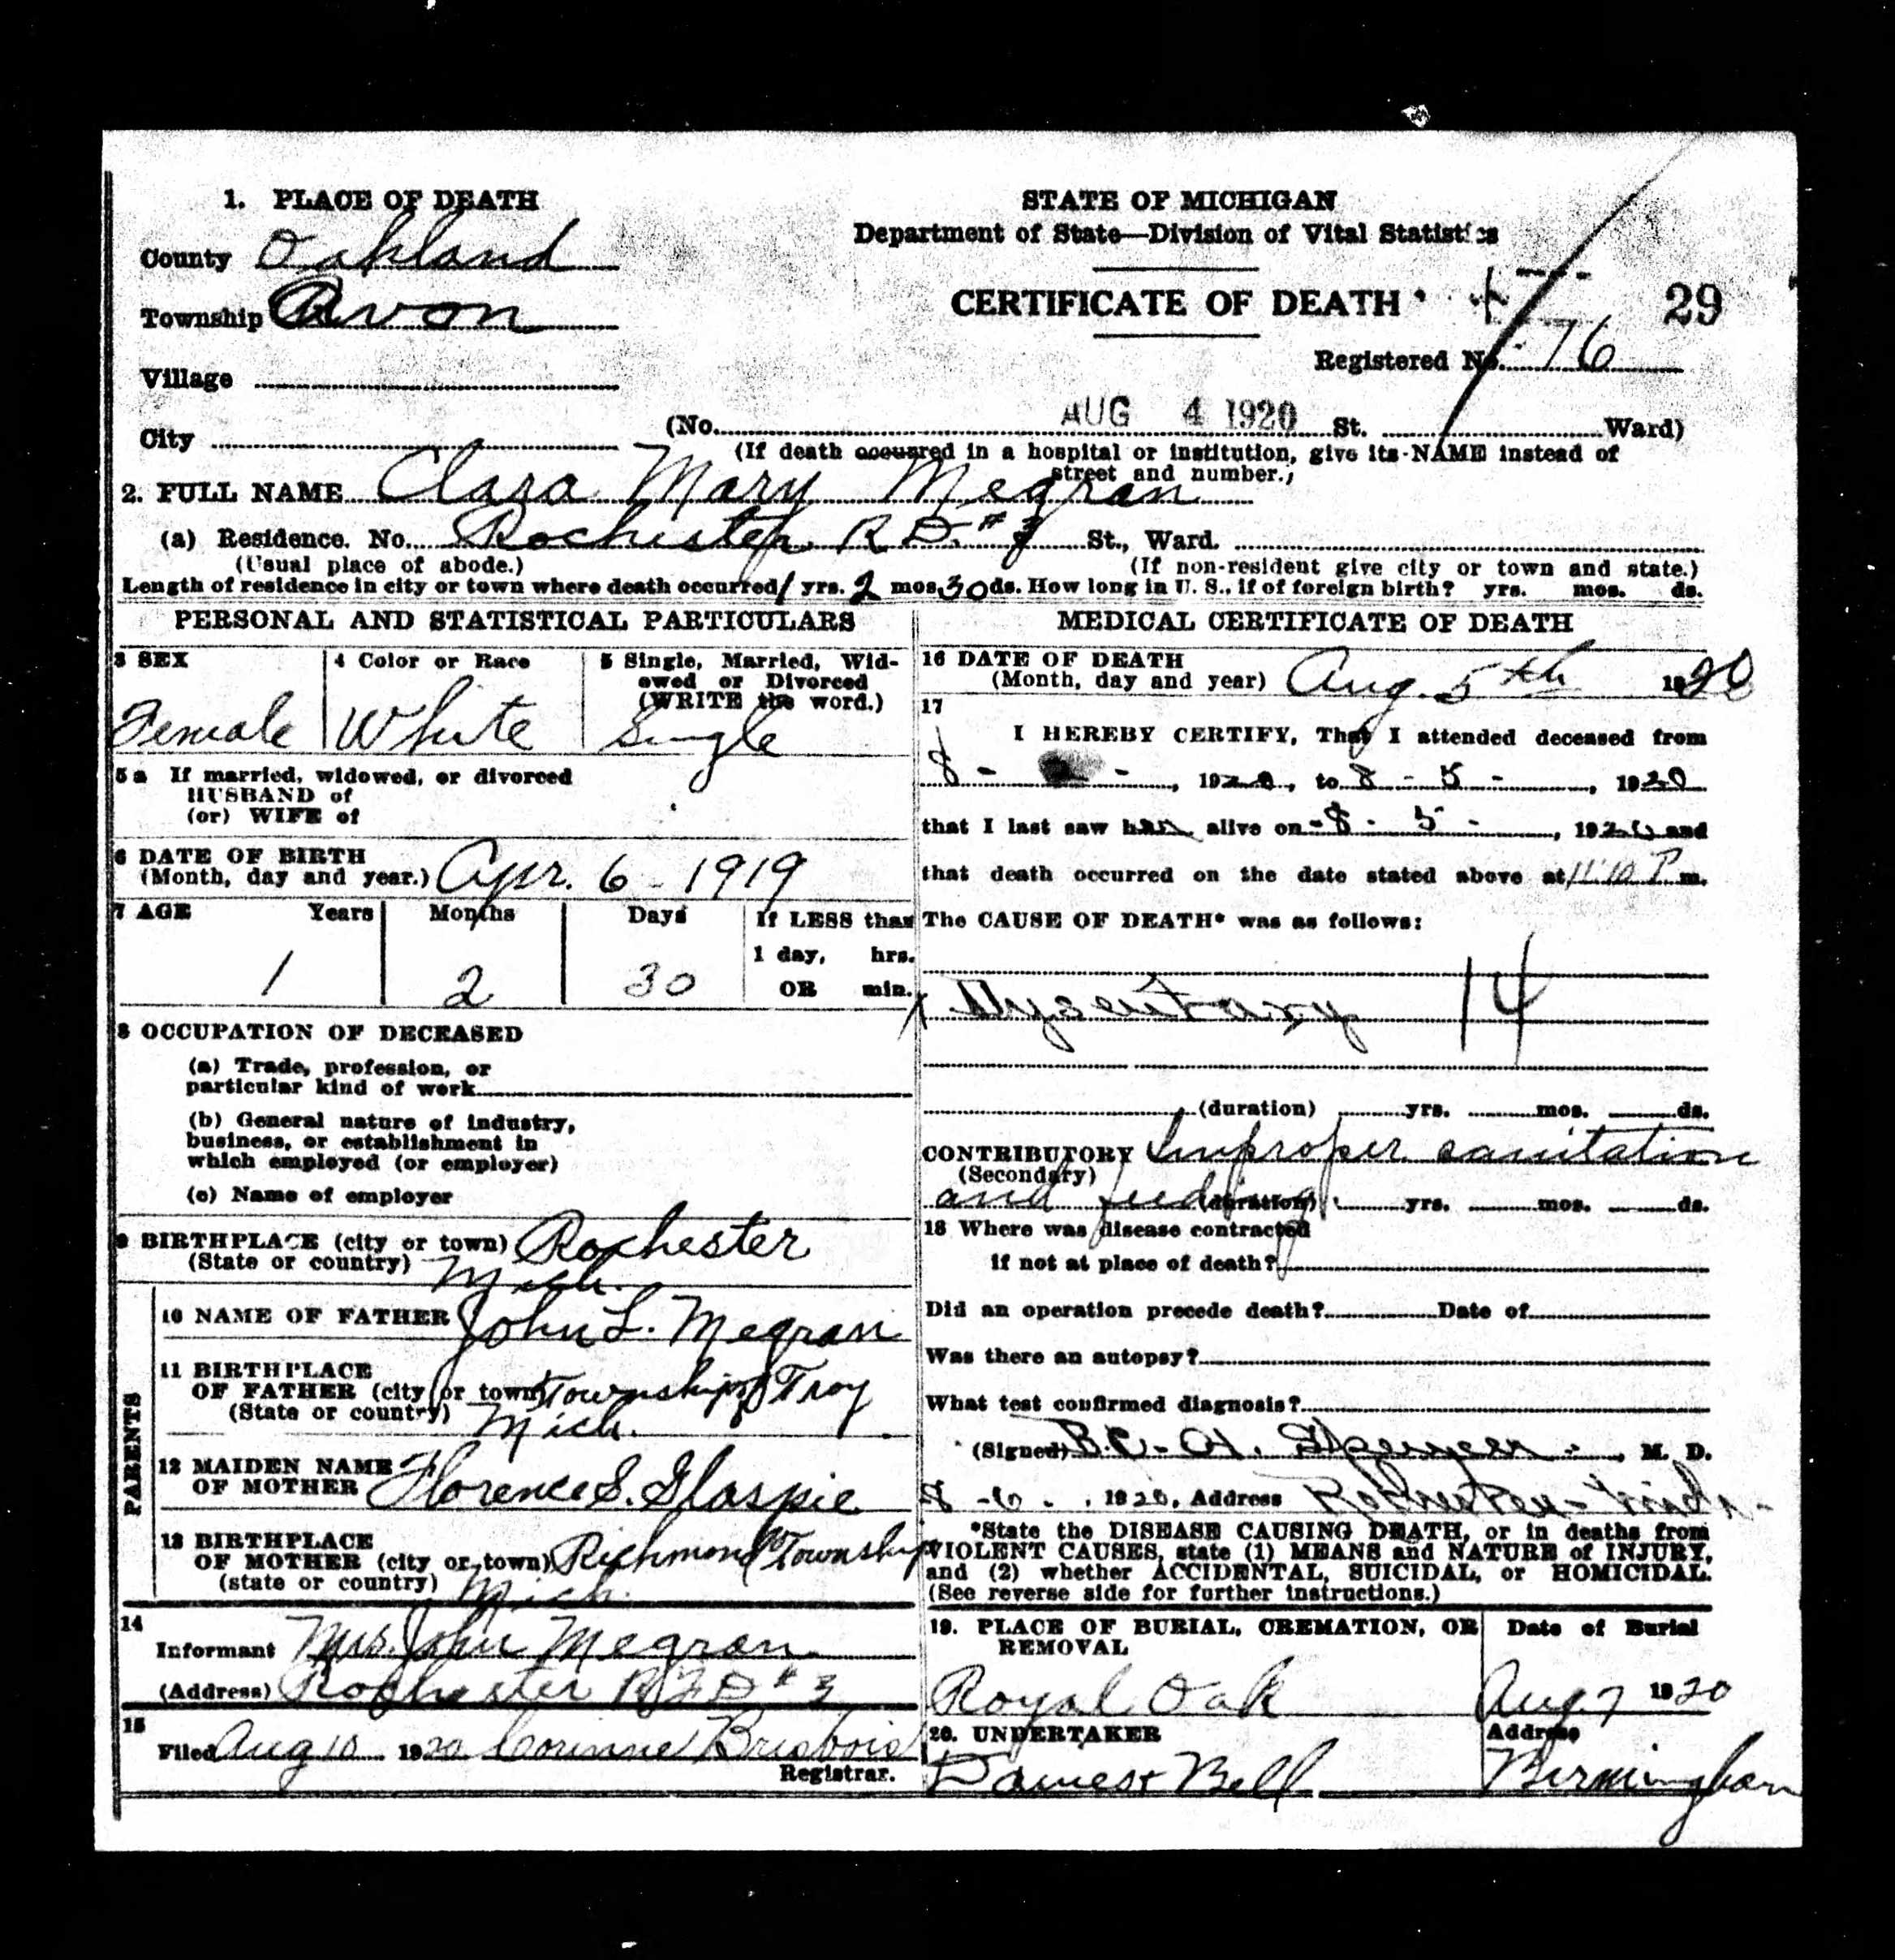 1. PLACE OF DEATH
County Oakland
Township Avon
Village
City
STATE OF MICHIGAN
Department of State—Division of Vital Statistics
CERTIFICATE OF DEATH
29
Registered No. 76
(No. AUG 4 1920 St. Ward)
(If death occurred in a hospital or institution, give its NAME instead of
street and number.)
2. FULL NAME Clara Mary Megran
(a) Residence. No. Rochester R D. # 3 St., Ward.
(Usual place of abode.) (If non-resident give city or town and state.)
Length of residence in city or town where death occurred 1 yrs. 2 mos. 30 ds. How long in U. S., if of foreign birth? yrs. mos. ds.
PERSONAL AND STATISTICAL PARTICULARS
3 SEX
Female
4 Color or Race
White
5 Single, Married, Wid-
owed or Divorced
(WRITE the word.)
Single
5 a If married, widowed, or divorced
HUSBAND of
(or) WIFE of
6 DATE OF BIRTH
(Month, day and year.) Apr. 6 - 1919
7 AGE Years Months Days If LESS than
1 day, hrs.
OR min.
1 2 30
8 OCCUPATION OF DECEASED
(a) Trade, profession, or
particular kind of work
(b) General nature of industry,
business, or establishment in
which employed (or employer)
(c) Name of employer
9 BIRTHPLACE (city or town) Rochester
(State or country) Mich.
PARENTS
10 NAME OF FATHER John L. Megran
11 BIRTHPLACE
OF FATHER (city or town) Township of Troy
(State or country) Mich.
12 MAIDEN NAME
OF MOTHER Florence S. Glaspie
13 BIRTHPLACE
OF MOTHER (city or town) Richmond Township
(state or country) Mich.
14
Informant Mrs. John Megran
(Address) Rochester R F D # 3
15
Filed Aug 10 1920 Corinne Brisbois
Registrar.
MEDICAL CERTIFICATE OF DEATH
16 DATE OF DEATH
(Month, day and year) Aug. 5th 1920
17
I HEREBY CERTIFY, That I attended deceased from
8 - - , 1920, to 8 - 5 - , 1920
that I last saw her alive on 8 - 5 - , 1920 and
that death occurred on the date stated above at 11:10 P. m.
The CAUSE OF DEATH* was as follows:
Dysentary 14
(duration) yrs. mos. ds.
CONTRIBUTORY Improper sanitation
(Secondary)
and feeding (duration) yrs. mos. ds.
18 Where was disease contracted
if not at place of death?
Did an operation precede death? Date of
Was there an autopsy?
What test confirmed diagnosis?
(Signed) H. Spencer , M. D.
8 - 6 - , 1920, Address Rochester - Mich -
*State the DISEASE CAUSING DEATH, or in deaths from
VIOLENT CAUSES, state (1) MEANS and NATURE of INJURY,
and (2) whether ACCIDENTAL, SUICIDAL, or HOMICIDAL.
(See reverse side for further instructions.)
19. PLACE OF BURIAL, CREMATION, OR
REMOVAL
Royal Oak
Date of Burial
Aug 7 1920
20. UNDERTAKER
Bell
Address
Birmingham